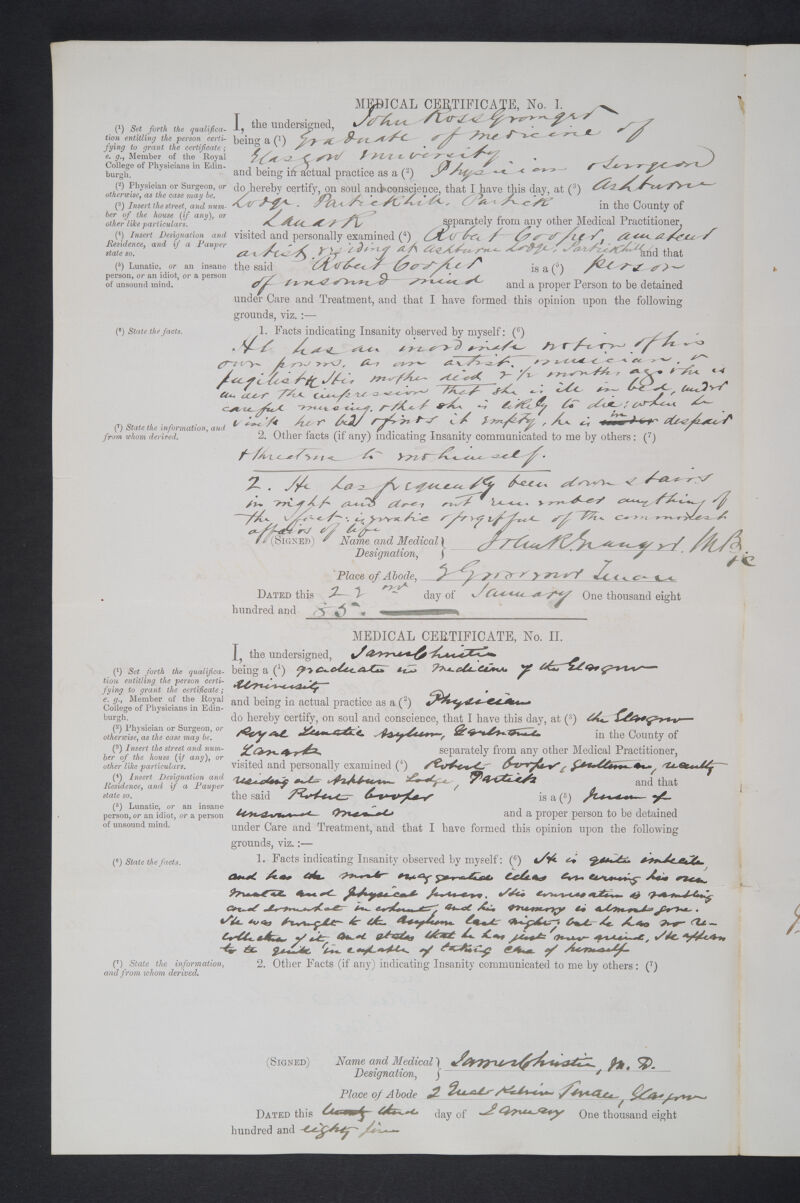 MEDICAL CERTIFICATE, No. I.
(1) Set forth the qualifica-
tion entitling the person certi-
fying to grant the certificate;
e. g., Member of the Royal
College of Physicians in Edin-
burgh.
(2) Physician or Surgeon, or
otherwise, as the case may be.
(3) Insert the street, and num-
ber of the house (if any), or
other like particulars.
(4) Insert Designation and
Residence, and if a Pauper
state so.
(5) Lunatic, or an insane
person, or an idiot, or a person
of unsound mind.
I, the undersigned, John Ross
being a (1) Graduate of medicine of
Glasgow University
and being in actual practice as a (2) Physician & Surgeon
do hereby certify, on soul and conscience, that I have this day, at (3) Ashburne
Lodge. Partickhill. Partick in the County of
Lanark separately from any other Medical Practitioner,
visited and personally examined (4) Robert Cooper, amateur
artist, residing at Ashburne Lodge. Partickhill and that
the said Robert Cooper is a (5) person
of unsound mind and a proper Person to be detained
under Care and Treatment, and that I have formed this opinion upon the following
grounds, viz. :—
(6) State the facts.
1. Facts indicating Insanity observed by myself: (6)
He has an inordinate notion of his
own powers, as an artist, musician, &
pugilist. His mother died 2 1/2 months ago & he is
under the impression that she is ill in bed, under
careful nursing, & that she is likely to die: when he
visits her bed & finds it empty, he is in despair
(7) State the information, and
from whom derived.
2. Other facts (if any) indicating Insanity communicated to me by others: (7)
& threatens to himself.
2. He has frequently been down stairs
in night and does not remember anything of
the fact: is erratic & forgetful of the commonest
affairs of life
(SIGNED) Name and Medical Designation, John R M.B.
Place of Abode, Grosvenor Terrace
DATED this 22nd day of January One thousand eight
hundred and 85.
MEDICAL CERTIFICATE, No. II.
(1) Set forth the qualifica-
tion entitling the person certi-
fying to grant the certificate;
e. g., Member of the Royal
College of Physicians in Edin-
burgh.
(2) Physician or Surgeon, or
otherwise, as the case may be.
(3) Insert the street and num-
ber of the house (if any), or
other like particulars.
(4) Insert Designation and
Residence, and if a Pauper
state so.
(5) Lunatic, or an insane
person, or an idiot, or a person
of unsound mind.
I, the undersigned, James Christie
being a (1) graduate in Medicine of the Glasgow
University
and being in actual practice as a (2) Physician
do hereby certify, on soul and conscience, that I have this day, at (3) the Glasgow
Royal Lunatic Asylum, Gartnavel in the County of
Lanark separately from any other Medical Practitioner,
visited and personally examined (4) Robert Cooper, gentleman, recently
residing at Ashburn Lodge, Partick and that
the said Robert Cooper is a (5) person of
unsound mind and a proper person to be detained
under Care and Treatment, and that I have formed this opinion upon the following
grounds, viz. :—
(6) State the facts.
1. Facts indicating Insanity observed by myself: (6) He is quite imbecile,
and has the most exaggerated ideas concerning his own
mental and physical powers. His conversation is rambling
and somewhat incoherent, and his memory is almost gone.
He was brought to the Asylum last night, but he has no re-
collection of it and states that he has just now arrived, He appears
to be quite incapable of taking care of himself
(7) State the information,
and from whom derived.
2. Other Facts (if any) indicating Insanity communicated to me by others: (7)
(SIGNED) Name and Medical Designation, James Christie, M. D.
Place of Abode 2 Great Kelvin Terrace, Glasgow
DATED this twenty third day of January One thousand eight
hundred and eighty five